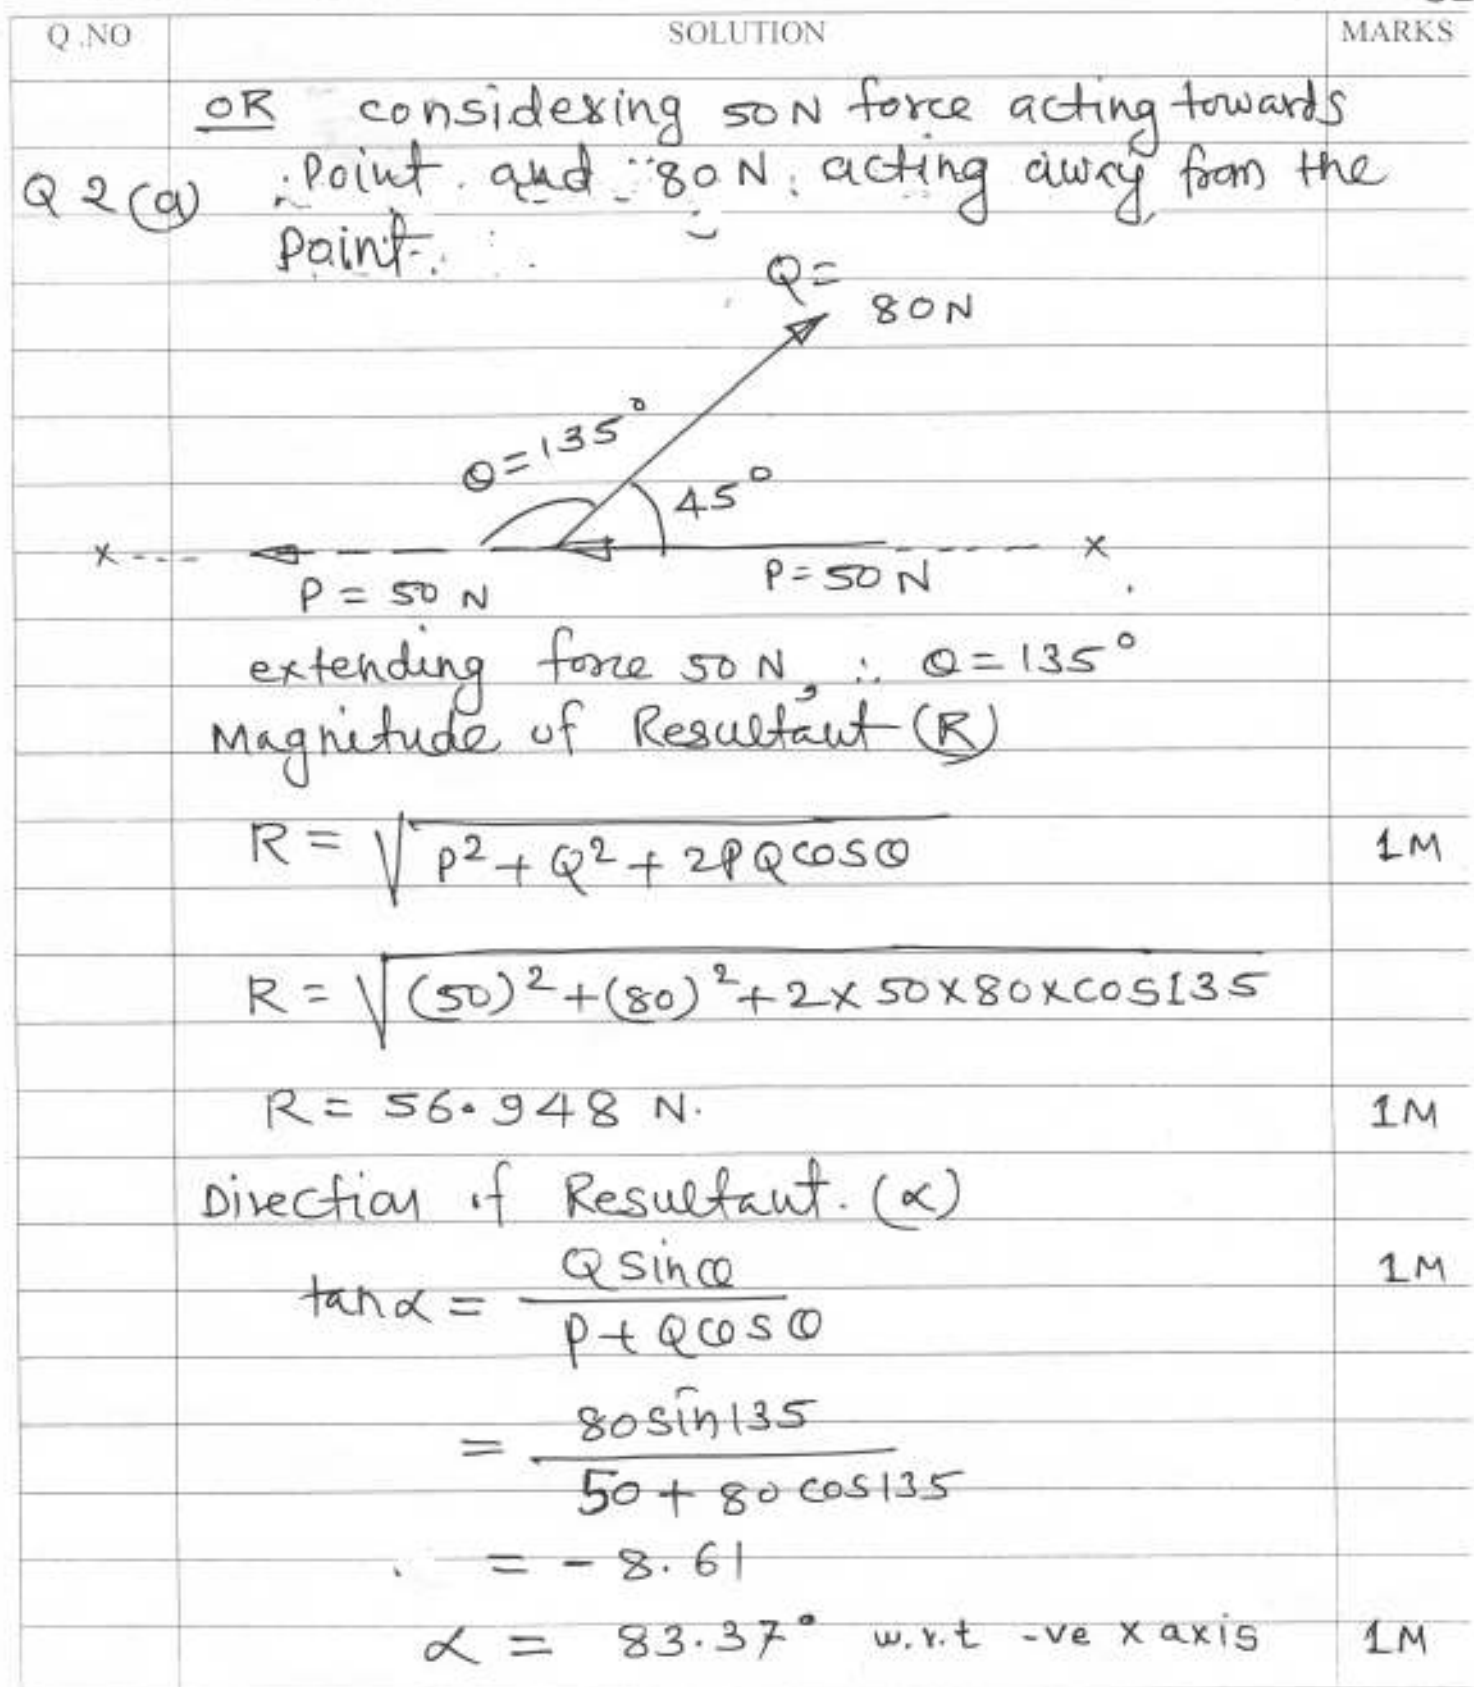 Q.NO SOLUTION MARKS
OR considering 50N force acting towards
Q 2 (a) point and 80 N acting away from the
point.
Q =
80N
θ = 135°
45°
x x
P = 50 N P = 50 N
extending force 50 N, ∴ θ = 135°
Magnitude of Resultant (R)
R = √P² + Q² + 2PQ cosθ 1M
R = √(50)² + (80)² + 2 × 50 × 80 × cos135
R = 56.948 N. 1M
Direction of Resultant. (α)
tanα = Q sinθ / P + Q cosθ 1M
= 80 sin135 / 50 + 80 cos135
= - 8.61
α = 83.37° w.r.t -ve x axis 1M